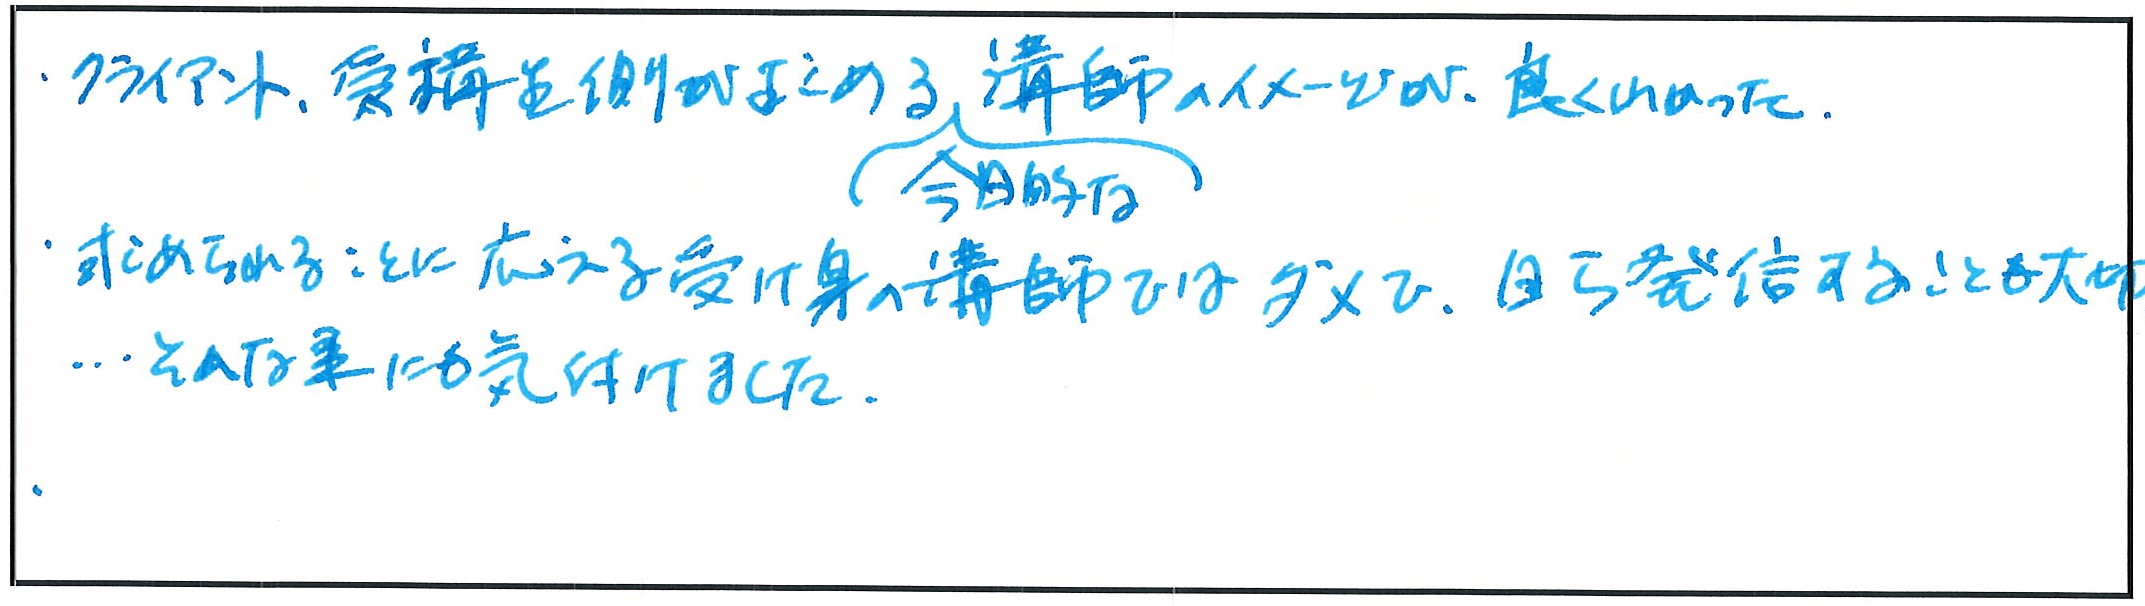 ・クライアント、受講生側がまとめる、講師のイメージが、良くわかった.
今日的な
・求められることに応える受け身の講師ではダメで、自ら発信することも大切
…そんな事にも気付けました.
・